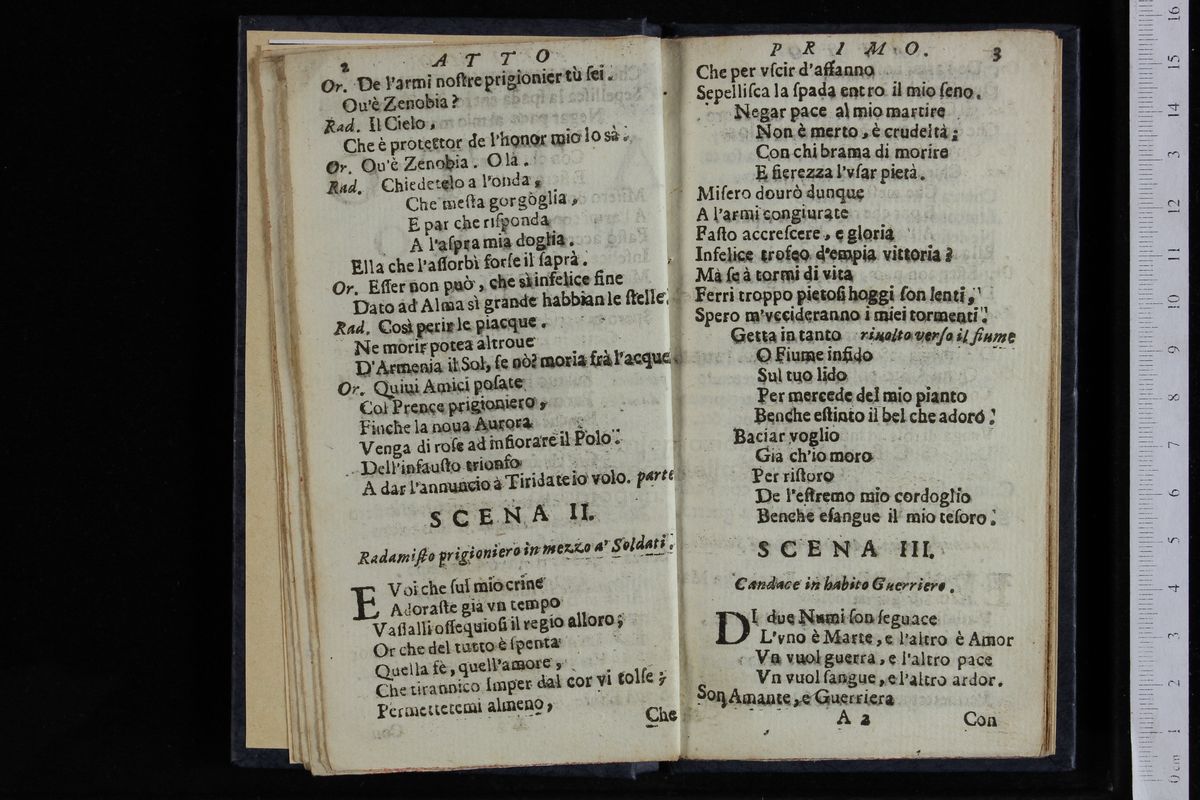 2 ATTO
Or. De l'armi noſtre prigionier tù ſei.
Ou'è Zenobia?
Rad. Il Cielo,
Che è protettor de l'honor mio lo sà.
Or. Ou'è Zenobia. Olà.
Rad. Chiedetelo a l'onda,
Che meſta gorgòglia,
E par che riſponda
A l'aſpra mia doglia.
Ella che l'aſſorbì forſe il ſaprà.
Or. Eſſer non può, che sì infelice fine
Dato ad Alma sì grande habbian le ſtelle.
Rad. Così perir le piacque.
Ne morir potea altroue
D'Armenia il Sol, ſe nò? moria frà l'acque
Or. Quiui Amici poſate
Col Prence prigioniero,
Finche la noua Aurora
Venga di roſe ad infiorare il Polo.
Dell'infauſto trionfo
A dar l'annuncio à Tiridate io volo. parte
SCENA II.
Radamiſto prigioniero in mezzo a' Soldati.
E Voi che ſul mio crine
Adoraſte gia vn tempo
Vaſſalli oſſequioſi il regio alloro;
Or che del tutto è ſpenta
Quella fè, quell'amore,
Che tirannico Imper dal cor vi tolſe;
Permettetemi almeno,
Che
PRIMO. 3
Che per vſcir d'affanno
Sepelliſca la ſpada entro il mio ſeno.
Negar pace al mio martire
Non è merto, è crudeltà;
Con chi brama di morire
E fierezza l'vſar pietà.
Miſero dourò dunque
A l'armi congiurate
Faſto accreſcere, e gloria
Infelice trofeo d'empia vittoria?
Mà ſe à tormi di vita
Ferri troppo pietoſi hoggi ſon lenti,
Spero m'vccideranno i miei tormenti.
Getta in tanto riuolto verſo il fiume
O Fiume infido
Sul tuo lido
Per mercede del mio pianto
Benche eſtinto il bel che adoró.
Baciar voglio
Già ch'io moro
Per riſtoro
De l'eſtremo mio cordoglio
Benche eſangue il mio teſoro.
SCENA III.
Candace in habito Guerriero.
DI due Numi ſon ſeguace
L'vno è Marte, e l'altro è Amor
Vn vuol guerra, e l'altro pace
Vn vuol ſangue, e l'altro ardor.
Son Amante, e Guerriera
A 2 Con
16
15
14
13
12
11
10
9
8
7
6
5
4
3
2
1
0 cm